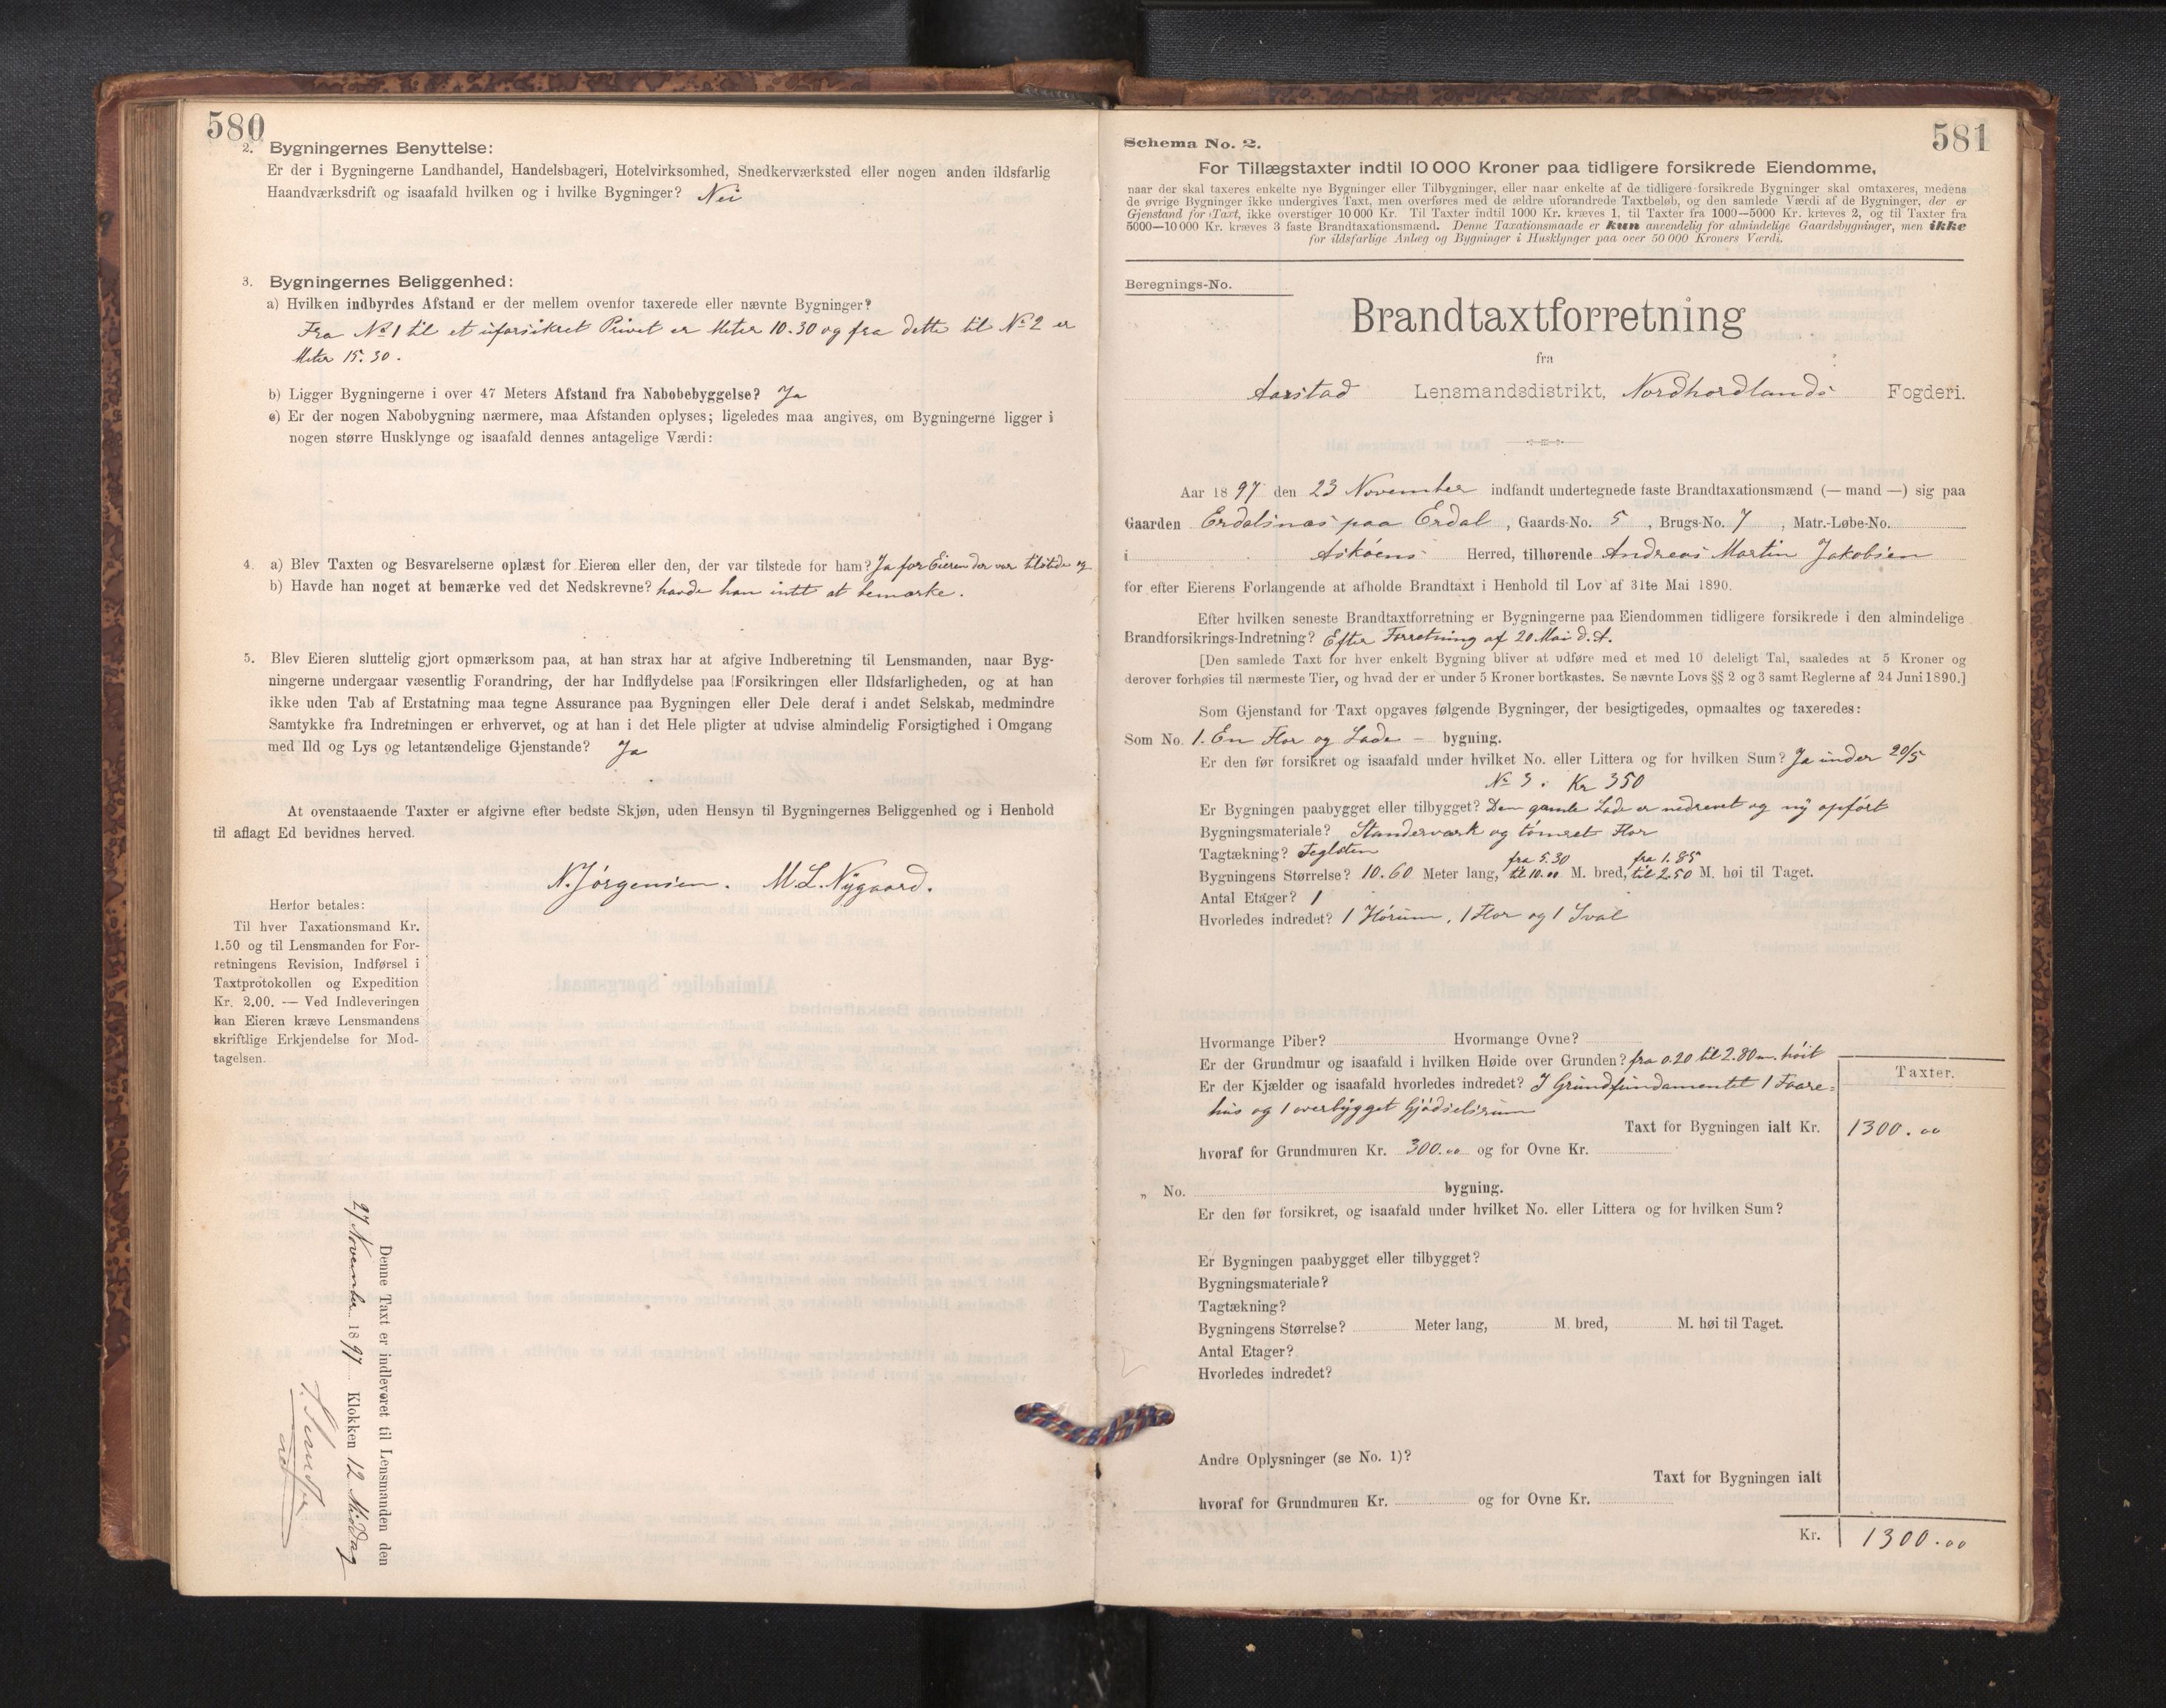 580
2. Bygningernes Benyttelse:
Er der i Bygningerne Landhandel, Handelsbageri, Hotelvirksomhed, Snedkerværksted eller nogen anden ildsfarlig
Haandværksdrift og isaafald hvilken og i hvilke Bygninger? Nei
3. Bygningernes Beliggenhed:
a) Hvilken indbyrdes Afstand er der mellem ovenfor taxerede eller nævnte Bygninger?
Fra No 1 til et uforsikret Privet er Meter 10.30 og fra dette til No 2 er
Meter 15.30.
b) Ligger Bygningerne i over 47 Meters Afstand fra Nabobebyggelse? Ja
c) Er der nogen Nabobygning nærmere, maa Afstanden oplyses; ligeledes maa angives, om Bygningerne ligger i
nogen større Husklynge og isaafald dennes antagelige Værdi:
4. a) Blev Taxten og Besvarelserne oplæst for Eieren eller den, der var tilstede for ham? Ja for Eieren der var tilstede og
b) Havde han noget at bemærke ved det Nedskrevne? havde han intet at bemærke.
5. Blev Eieren sluttelig gjort opmærksom paa, at han strax har at afgive Indberetning til Lensmanden, naar Byg-
ningerne undergaar væsentlig Forandring, der har Indflydelse paa Forsikringen eller Ildsfarligheden, og at han
ikke uden Tab af Erstatning maa tegne Assurance paa Bygningen eller Dele deraf i andet Selskab, medmindre
Samtykke fra Indretningen er erhvervet, og at han i det Hele pligter at udvise almindelig Forsigtighed i Omgang
med Ild og Lys og letantændelige Gjenstande? Ja
At ovenstaaende Taxter er afgivne efter bedste Skjøn, uden Hensyn til Bygningernes Beliggenhed og i Henhold
til aflagt Ed bevidnes herved.
N. Jörgensen. M. L. Nygaard.
Herfor betales:
Til hver Taxationsmand Kr.
1.50 og til Lensmanden for For-
retningens Revision, Indførsel i
Taxtprotokollen og Expedition
Kr. 2.00. — Ved Indleveringen
kan Eieren kræve Lensmandens
skriftlige Erkjendelse for Mod-
tagelsen.
Denne Taxt er indleveret til Lensmanden den
27 November 1897 Klokken 12 Middag
581
Schema No. 2.
For Tillægstaxter indtil 10 000 Kroner paa tidligere forsikrede Eiendomme,
naar der skal taxeres enkelte nye Bygninger eller Tilbygninger, eller naar enkelte af de tidligere forsikrede Bygninger skal omtaxeres, medens
de øvrige Bygninger ikke undergives Taxt, men overføres med de ældre uforandrede Taxtbeløb, og den samlede Værdi af de Bygninger, der er
Gjenstand for Taxt, ikke overstiger 10 000 Kr. Til Taxter indtil 1000 Kr. kræves 1, til Taxter fra 1000—5000 Kr. kræves 2, og til Taxter fra
5000—10 000 Kr. kræves 3 faste Brandtaxationsmænd. Denne Taxationsmaade er kun anvendelig for almindelige Gaardsbygninger, men ikke
for ildsfarlige Anlæg og Bygninger i Husklynger paa over 50 000 Kroners Værdi.
Beregnings-No.
Brandtaxtforretning
fra
Aarstad Lensmandsdistrikt, Nordhordlands Fogderi.
Aar 1897 den 23 November indfandt undertegnede faste Brandtaxationsmænd (— mand —) sig paa
Gaarden Erdalsnæs paa Erdal, Gaards-No. 5, Brugs-No. 7, Matr.-Løbe-No.
i Askøens Herred, tilhørende Andreas Martin Jakobsen
for efter Eierens Forlangende at afholde Brandtaxt i Henhold til Lov af 31te Mai 1890.
Efter hvilken seneste Brandtaxtforretning er Bygningerne paa Eiendommen tidligere forsikrede i den almindelige
Brandforsikrings-Indretning? Efter Forretning af 20 Mai d. A.
[Den samlede Taxt for hver enkelt Bygning bliver at udføre med et med 10 deleligt Tal, saaledes at 5 Kroner og
derover forhøies til nærmeste Tier, og hvad der er under 5 Kroner bortkastes. Se nævnte Lovs §§ 2 og 3 samt Reglerne af 24 Juni 1890.]
Som Gjenstand for Taxt opgaves følgende Bygninger, der besigtigedes, opmaaltes og taxeredes:
Som No. 1. En Flor og Lade – bygning.
Er den før forsikret og isaafald under hvilket No. eller Littera og for hvilken Sum? Ja under 20/5
No 3. Kr 350
Er Bygningen paabygget eller tilbygget? Den gamle Lade er nedrevet og ny opført
Bygningsmateriale? Standerværk og tømret Flor
Tagtækning? Teglsten
Bygningens Størrelse? 10.60 Meter lang, fra 5.30 til 10.00 M. bred, fra 1.85 til 2.50 M. høi til Taget.
Antal Etager? 1
Hvorledes indredet? 1 Hörum, 1 Flor og 1 Sval
Hvormange Piber? Hvormange Ovne?
Er der Grundmur og isaafald i hvilken Høide over Grunden? fra 0.20 til 2.80 m. höit
Er der Kjælder og isaafald hvorledes indredet? I Grundfundamentet 1 Faare-
hus og 1 overbygget Gjödselsrum
Taxter.
Taxt for Bygningen ialt Kr. 1300.00
hvoraf for Grundmuren Kr. 300.00 og for Ovne Kr.
„ No. bygning.
Er den før forsikret, og isaafald under hvilket No. eller Littera og for hvilken Sum?
Er Bygningen paabygget eller tilbygget?
Bygningsmateriale?
Tagtækning?
Bygningens Størrelse? Meter lang, M. bred, M. høi til Taget.
Antal Etager?
Hvorledes indredet?
Andre Oplysninger (se No. 1)?
Taxt for Bygningen ialt
hvoraf for Grundmuren Kr. og for Ovne Kr.
Kr. 1300.00